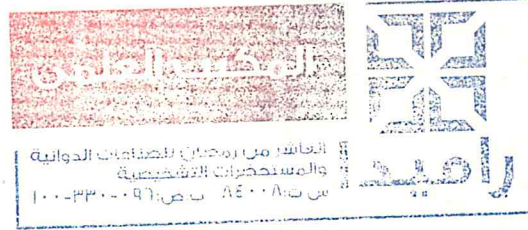 المكتب العلمي
راميد
العاشر من رمضان للصناعات الدوائية
والمستحضرات التشخيصية
س ت: ٨٤٠٠٨ ب ض: ٠٩٦-٣٣٠-١٠٠